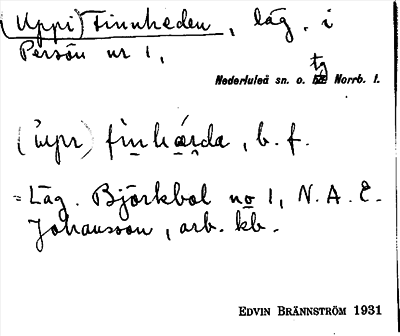 (Uppi) Finnheden, läg. i
Persön nr 1,
Nederluleå sn. o. tg Norrb. l.
(ùpi) fin hā́ṇda, b. f.
= Läg. Björkbol no 1, N. A. E.
Johansson, arb. kb.
EDVIN BRÄNNSTRÖM 1931